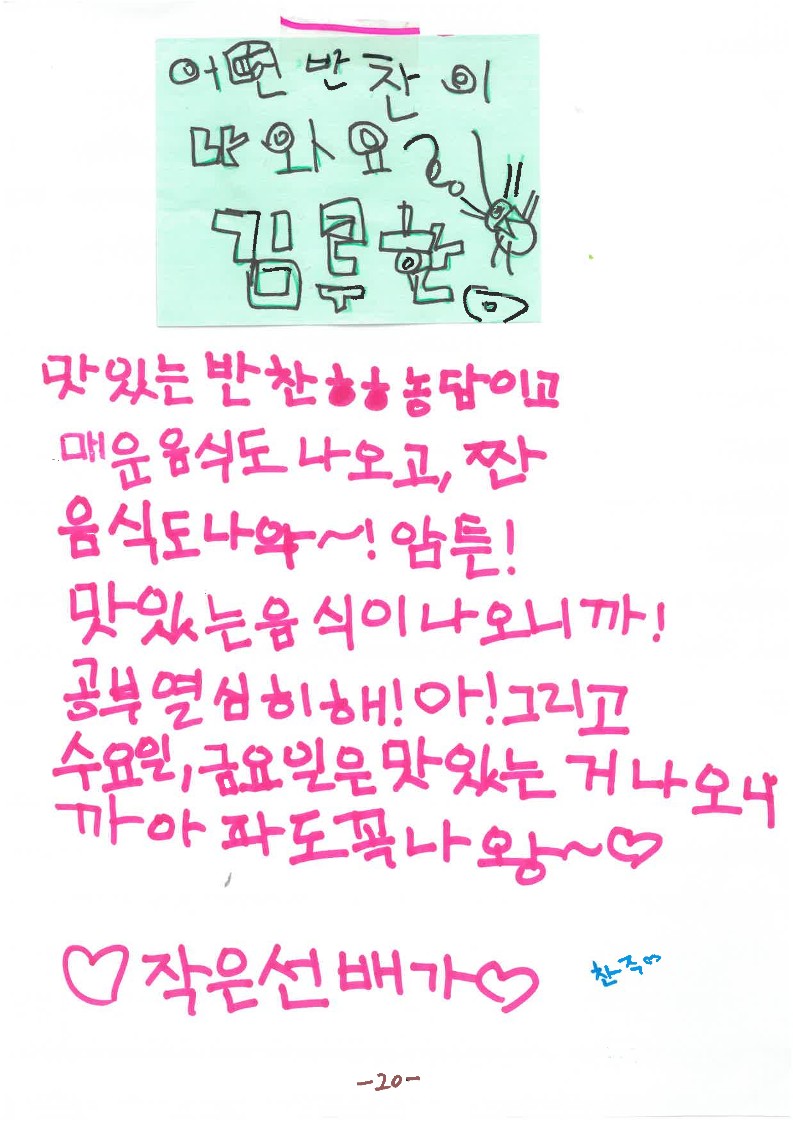 어떤 반찬이
나와요
김루환
맛있는 반찬ㅎㅎ 농담이고
매운 음식도 나오고, 짠
음식도 나와~! 암튼!
맛있는 음식이 나오니까!
공부 열심히 해! 아! 그리고
수요일, 금요일은 맛있는 거 나오니
까 아파도 꼭 나왕~♡
♡작은선배가♡
-20-